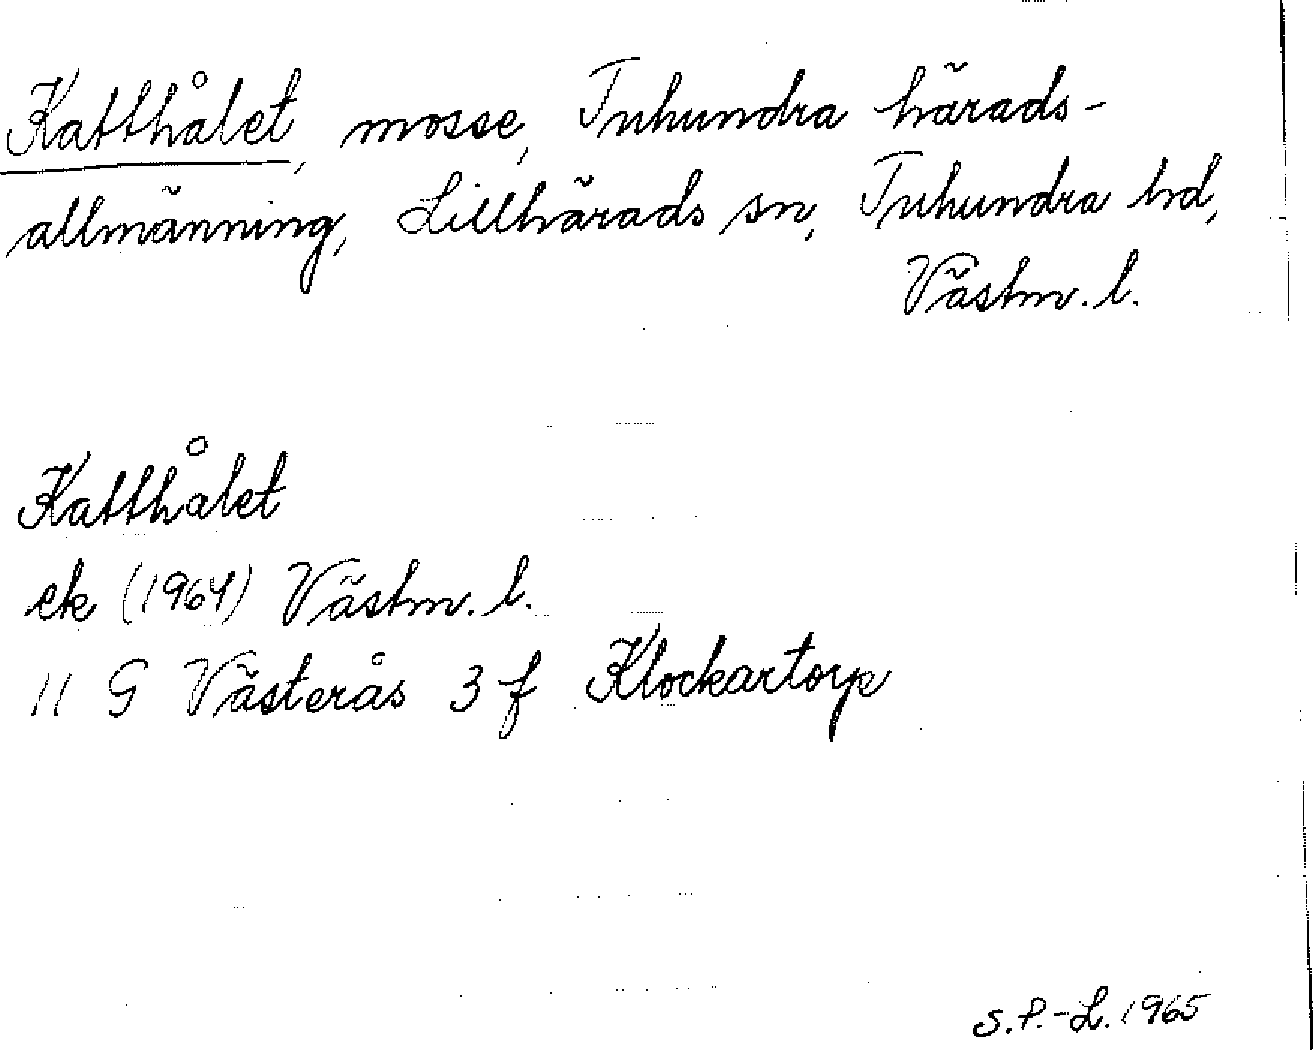 Katthålet, mosse, Tuhundra härads-
allmänning, Lillhärads sn, Tuhundra hd,
Västm. l.
Katthålet
ek (1964) Västm. l.
11 G Västerås 3 f Klockartorp
S.P.-L. 1965